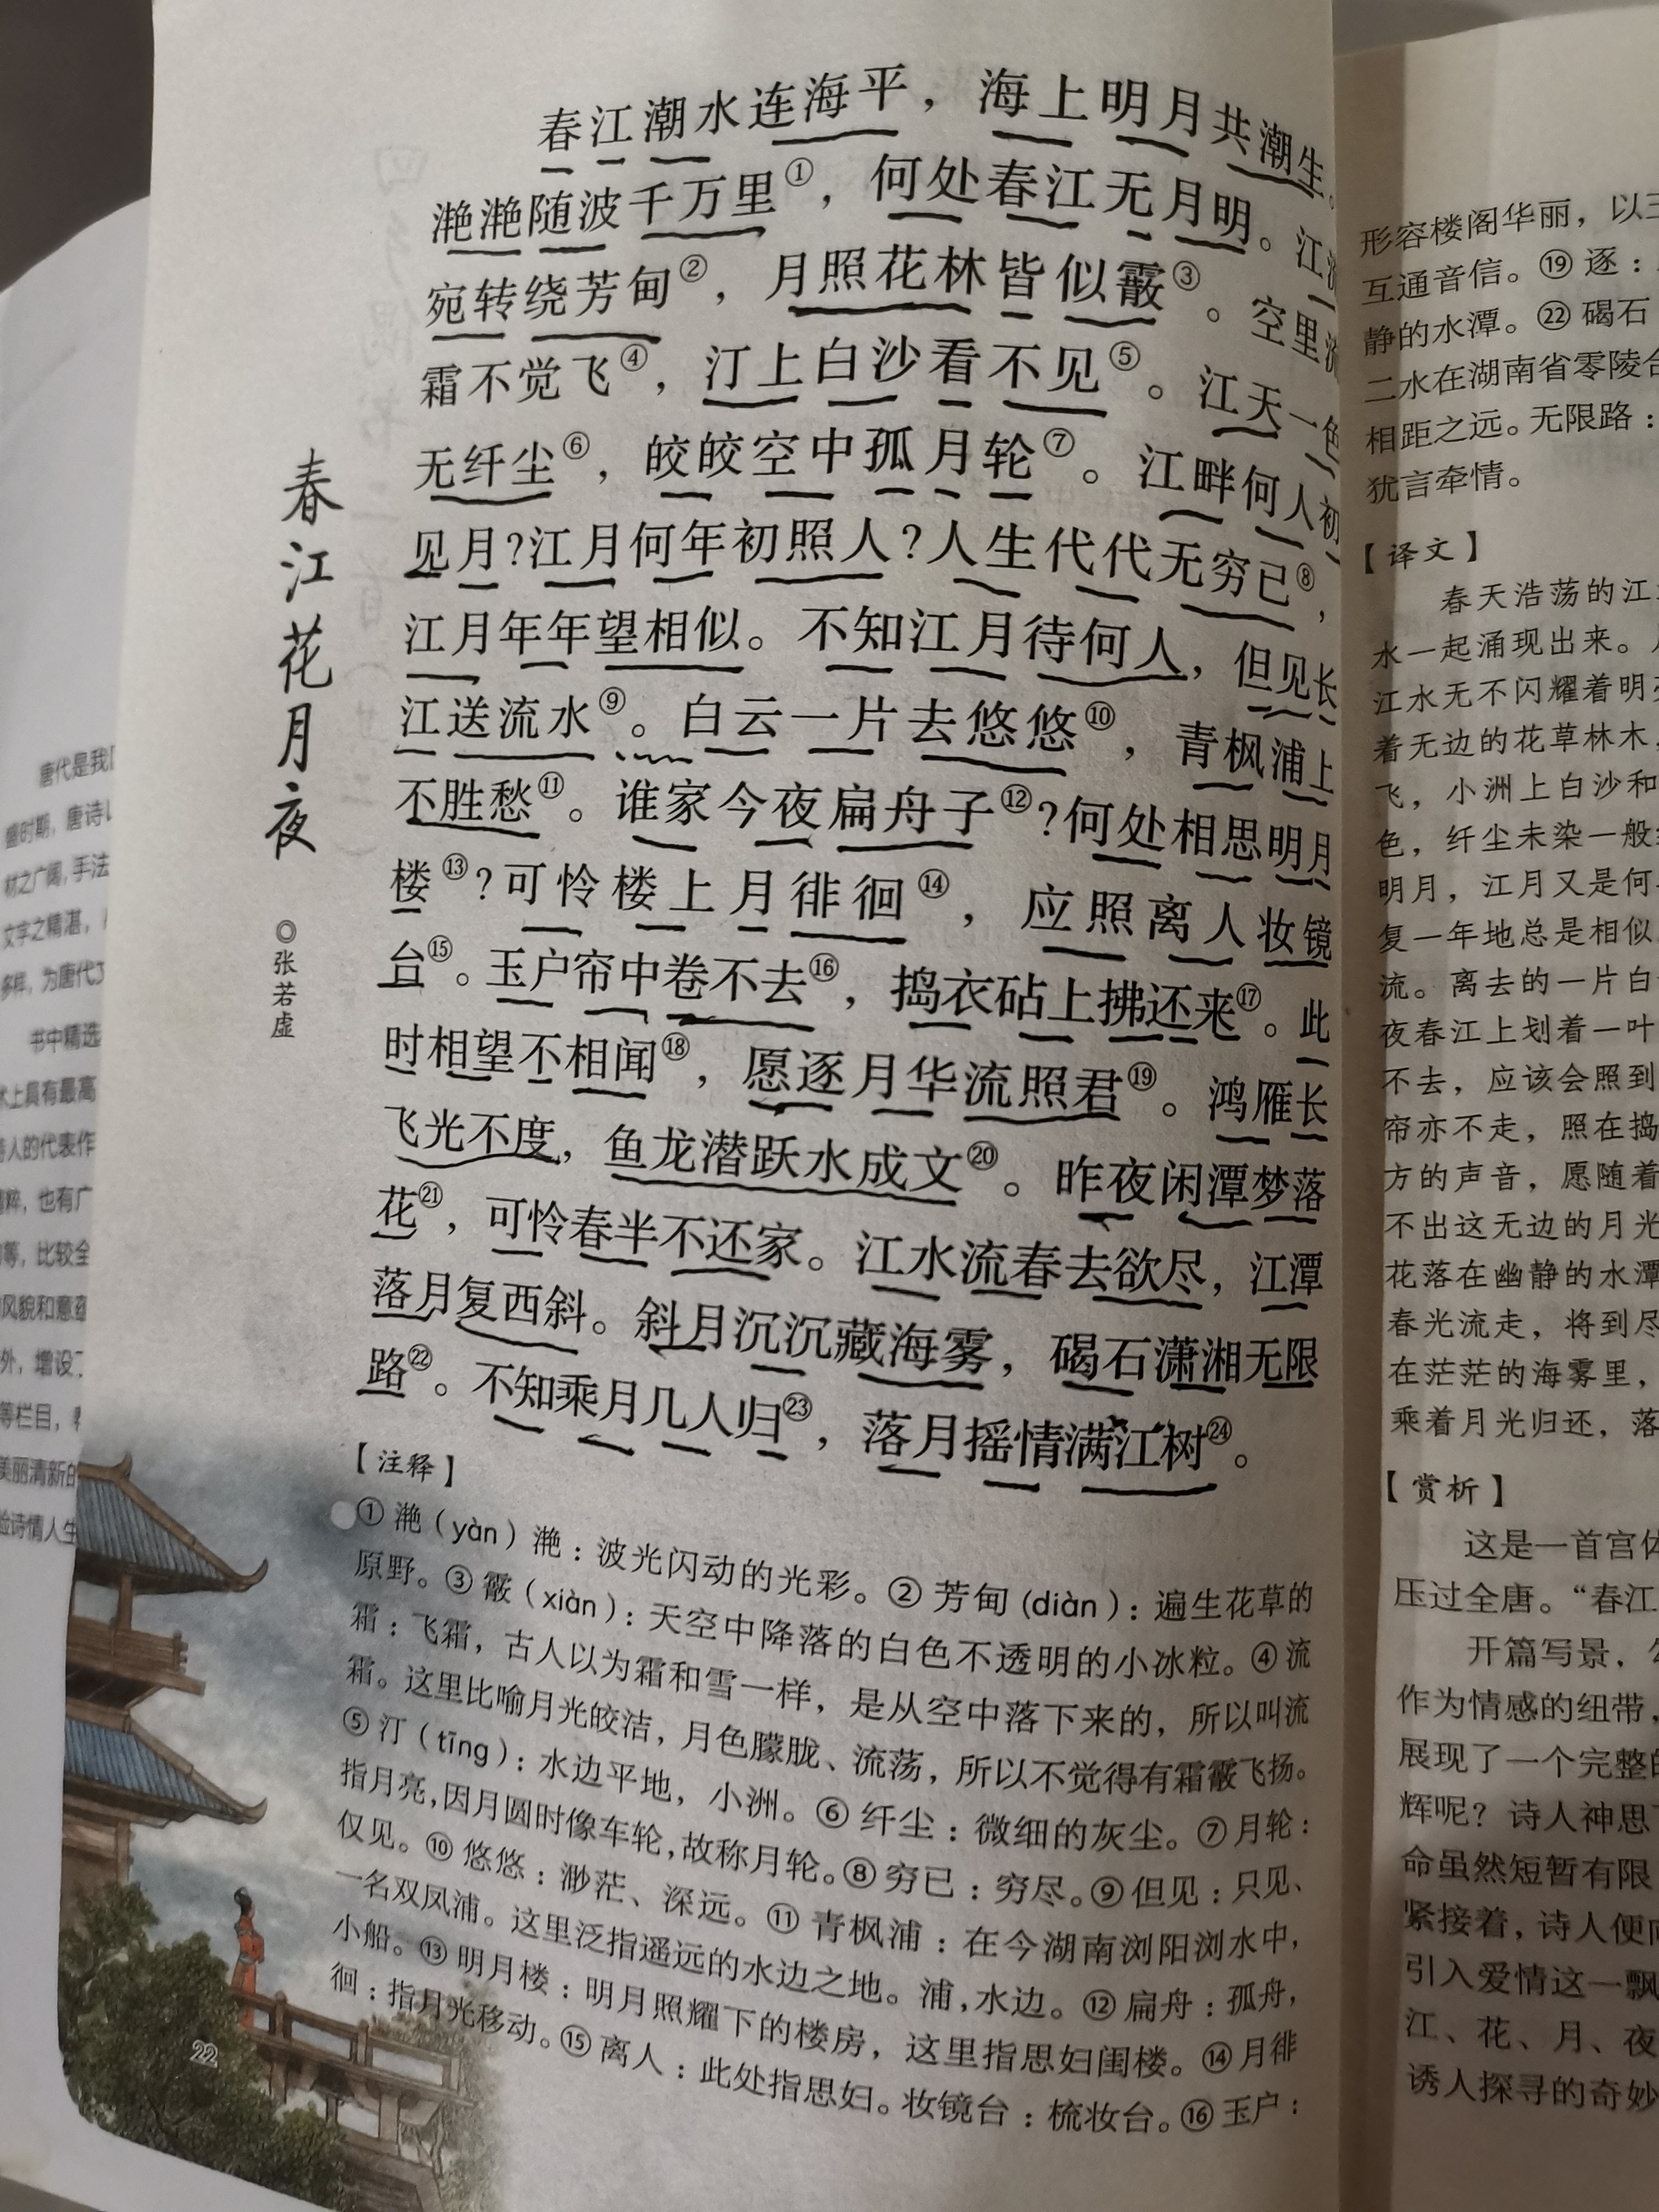 春江花月夜
◎张若虚
春江潮水连海平，海上明月共潮生。
滟滟随波千万里①，何处春江无月明。江
宛转绕芳甸②，月照花林皆似霰③。空里
霜不觉飞④，汀上白沙看不见⑤。江天一色
无纤尘⑥，皎皎空中孤月轮⑦。江畔何人初
见月？江月何年初照人？人生代代无穷已⑧，
江月年年望相似。不知江月待何人，但见长
江送流水⑨。白云一片去悠悠⑩，青枫浦上
不胜愁⑪。谁家今夜扁舟子⑫？何处相思明月
楼⑬？可怜楼上月徘徊⑭，应照离人妆镜
台⑮。玉户帘中卷不去⑯，捣衣砧上拂还来⑰。此
时相望不相闻⑱，愿逐月华流照君⑲。鸿雁长
飞光不度，鱼龙潜跃水成文⑳。昨夜闲潭梦落
花㉑，可怜春半不还家。江水流春去欲尽，江潭
落月复西斜。斜月沉沉藏海雾，碣石潇湘无限
路㉒。不知乘月几人归㉓，落月摇情满江树㉔。
【注释】
①滟（yàn）滟：波光闪动的光彩。②芳甸（diàn）：遍生花草的
原野。③霰（xiàn）：天空中降落的白色不透明的小冰粒。④流
霜：飞霜，古人以为霜和雪一样，是从空中落下来的，所以叫流
霜。这里比喻月光皎洁，月色朦胧、流荡，所以不觉得有霜霰飞扬。
⑤汀（tīng）：水边平地，小洲。⑥纤尘：微细的灰尘。⑦月轮：
指月亮，因月圆时像车轮，故称月轮。⑧穷已：穷尽。⑨但见：只见、
仅见。⑩悠悠：渺茫、深远。⑪青枫浦：在今湖南浏阳浏水中，
一名双凤浦。这里泛指遥远的水边之地。浦，水边。⑫扁舟：孤舟，
小船。⑬明月楼：明月照耀下的楼房，这里指思妇闺楼。⑭月徘
徊：指月光移动。⑮离人：此处指思妇。妆镜台：梳妆台。⑯玉户：
22
形容楼阁华丽，以
互通音信。⑲逐：
静的水潭。㉒碣石
二水在湖南省零陵
相距之远。无限路：
犹言牵情。
【译文】
春天浩荡的江
水一起涌现出来。
江水无不闪耀着明
着无边的花草林木，
飞，小洲上白沙和
色，纤尘未染一般
明月，江月又是何
复一年地总是相似
流。离去的一片白
夜春江上划着一叶
不去，应该会照到
帘亦不走，照在捣
方的声音，愿随着
不出这无边的月光
花落在幽静的水潭
春光流走，将到尽
在茫茫的海雾里，
乘着月光归还，落
【赏析】
这是一首宫体
压过全唐。“春江
开篇写景，
作为情感的纽带，
展现了一个完整的
辉呢？诗人神思
命虽然短暂有限
紧接着，诗人便
引入爱情这一飘
江、花、月、夜
诱人探寻的奇妙
唐代是我
盛时期，唐诗
材之广阔，手法
文字之精湛，
多样，为唐代
书中精选
术上具有最高
诗人的代表作
精粹，也有广
等，比较全
风貌和意蕴
外，增设了
等栏目，
美丽清新的
验诗情人生